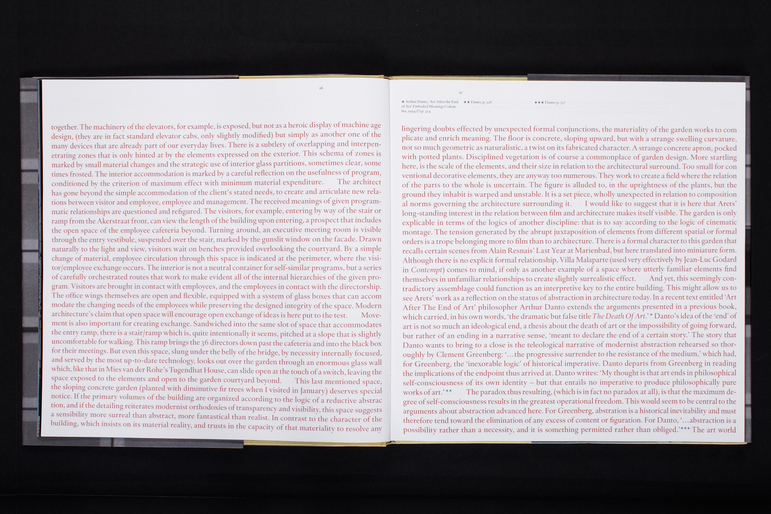 46
together. The machinery of the elevators, for example, is exposed, but not as a heroic display of machine age
design, (they are in fact standard elevator cabs, only slightly modified) but simply as another one of the
many devices that are already part of our everyday lives. There is a subtlety of overlapping and interpen-
etrating zones that is only hinted at by the elements expressed on the exterior. This schema of zones is
marked by small material changes and the strategic use of interior glass partitions, sometimes clear, some
times frosted. The interior accommodation is marked by a careful reflection on the usefulness of program,
conditioned by the criterion of maximum effect with minimum material expenditure. The architect
has gone beyond the simple accommodation of the client's stated needs, to create and articulate new rela-
tions between visitor and employee, employee and management. The received meanings of given program-
matic relationships are questioned and refigured. The visitors, for example, entering by way of the stair or
ramp from the Akerstraat front, can view the length of the building upon entering, a prospect that includes
the open space of the employee cafeteria beyond. Turning around, an executive meeting room is visible
through the entry vestibule, suspended over the stair, marked by the gunslit window on the facade. Drawn
naturally to the light and view, visitors wait on benches provided overlooking the courtyard. By a simple
change of material, employee circulation through this space is indicated at the perimeter, where the visi-
tor/employee exchange occurs. The interior is not a neutral container for self-similar programs, but a series
of carefully orchestrated routes that work to make evident all of the internal hierarchies of the given pro-
gram. Visitors are brought in contact with employees, and the employees in contact with the directorship.
The office wings themselves are open and flexible, equipped with a system of glass boxes that can accom
modate the changing needs of the employees while preserving the designed integrity of the space. Modern
architecture's claim that open space will encourage open exchange of ideas is here put to the test. Move-
ment is also important for creating exchange. Sandwiched into the same slot of space that accommodates
the entry ramp, there is a stair/ramp which is, quite intentionally it seems, pitched at a slope that is slightly
uncomfortable for walking. This ramp brings the 36 directors down past the cafeteria and into the black box
for their meetings. But even this space, slung under the belly of the bridge, by necessity internally focused,
and served by the most up-to-date technology, looks out over the garden through an enormous glass wall
which, like that in Mies van der Rohe's Tugendhat House, can slide open at the touch of a switch, leaving the
space exposed to the elements and open to the garden courtyard beyond. This last mentioned space,
the sloping concrete garden (planted with diminutive fir trees when I visited in January) deserves special
notice. If the primary volumes of the building are organized according to the logic of a reductive abstrac
tion, and if the detailing reiterates modernist orthodoxies of transparency and visibility, this space suggests
a sensibility more surreal than abstract, more fantastical than realist. In contrast to the character of the
building, which insists on its material reality, and trusts in the capacity of that materiality to resolve any
47
lingering doubts effected by unexpected formal conjunctions, the materiality of the garden works to com
plicate and enrich meaning. The floor is concrete, sloping upward, but with a strange swelling curvature,
not so much geometric as naturalistic, a twist on its fabricated character. A strange concrete apron, pocked
with potted plants. Disciplined vegetation is of course a commonplace of garden design. More startling
here, is the scale of the elements, and their size in relation to the architectural surround. Too small for con
ventional decorative elements, they are anyway too numerous. They work to create a field where the relation
of the parts to the whole is uncertain. The figure is alluded to, in the uprightness of the plants, but the
ground they inhabit is warped and unstable. It is a set piece, wholly unexpected in relation to composition
al norms governing the architecture surrounding it. I would like to suggest that it is here that Arets'
long-standing interest in the relation between film and architecture makes itself visible. The garden is only
explicable in terms of the logics of another discipline: that is to say according to the logic of cinematic
montage. The tension generated by the abrupt juxtaposition of elements from different spatial or formal
orders is a trope belonging more to film than to architecture. There is a formal character to this garden that
recalls certain scenes from Alain Resnais' Last Year at Marienbad, but here translated into miniature form.
Although there is no explicit formal relationship, Villa Malaparte (used very effectively by Jean-Luc Godard
in Contempt) comes to mind, if only as another example of a space where utterly familiar elements find
themselves in unfamiliar relationships to create slightly surrealist effect. And yet, this seemingly con-
tradictory assemblage could function as an interpretive key to the entire building. This might allow us to
see Arets' work as a reflection on the status of abstraction in architecture today. In a recent text entitled 'Art
After The End of Art' philosopher Arthur Danto extends the arguments presented in a previous book,
which carried, in his own words, 'the dramatic but false title The Death Of Art.'* Danto's idea of the 'end' of
art is not so much an ideological end, a thesis about the death of art or the impossibility of going forward,
but rather of an ending in a narrative sense, 'meant to declare the end of a certain story.' The story that
Danto wants to bring to a close is the teleological narrative of modernist abstraction rehearsed so thor-
oughly by Clement Greenberg: '...the progressive surrender to the resistance of the medium,' which had,
for Greenberg, the 'inexorable logic' of historical imperative. Danto departs from Greenberg in reading
the implications of the endpoint thus arrived at. Danto writes: 'My thought is that art ends in philosophical
self-consciousness of its own identity – but that entails no imperative to produce philosophically pure
works of art.'** The paradox thus resulting, (which is in fact no paradox at all), is that the maximum de-
gree of self-consciousness results in the greatest operational freedom. This would seem to be central to the
arguments about abstraction advanced here. For Greenberg, abstraction is a historical inevitability and must
therefore tend toward the elimination of any excess of content or figuration. For Danto, '...abstraction is a
possibility rather than a necessity, and it is something permitted rather than obliged.'*** The art world